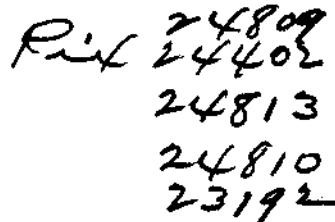 Pink 24809
24402
24813
24810
23192